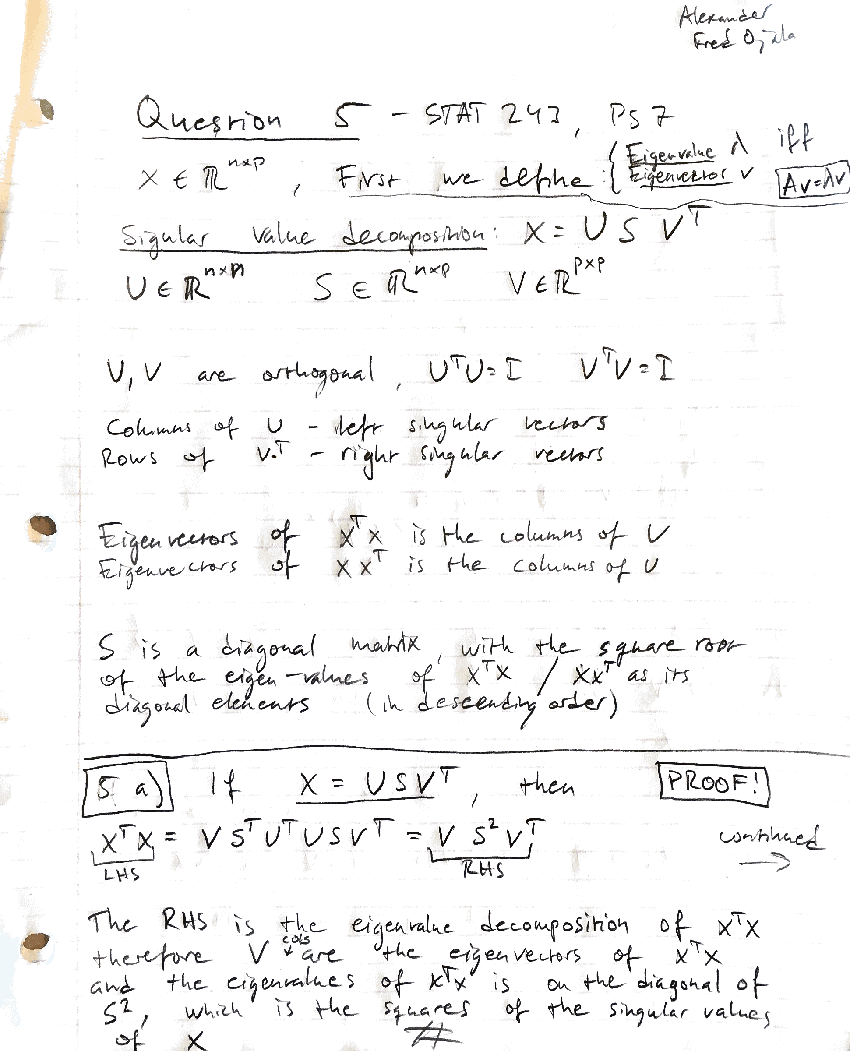 Alexander
Fred Ojala
Question 5 - STAT 243, PS 7
X ∈ ℝⁿˣᵖ, First we define: { Eigenvalue λ iff
Eigenvector v Av=λv
Sigular value decomposition: X = U S Vᵀ
U ∈ ℝⁿˣⁿ S ∈ ℝⁿˣᵖ V ∈ ℝᵖˣᵖ
U, V are orthogonal, UᵀU = I VᵀV = I
Columns of U - left singular vectors
Rows of Vᵀ - right singular vectors
Eigenvectors of XᵀX is the columns of V
Eigenvectors of XXᵀ is the columns of U
S is a diagonal matrix, with the square root
of the eigen-values of XᵀX / XXᵀ as its
diagonal elements (in descending order)
5 a) If X = USVᵀ, then PROOF!
XᵀX = V SᵀUᵀU S Vᵀ = V S² Vᵀ continued →
LHS RHS
The RHS is the eigenvalue decomposition of XᵀX
therefore V cols are the eigenvectors of XᵀX
and the eigenvalues of XᵀX is on the diagonal of
S², which is the squares of the singular values
of X #